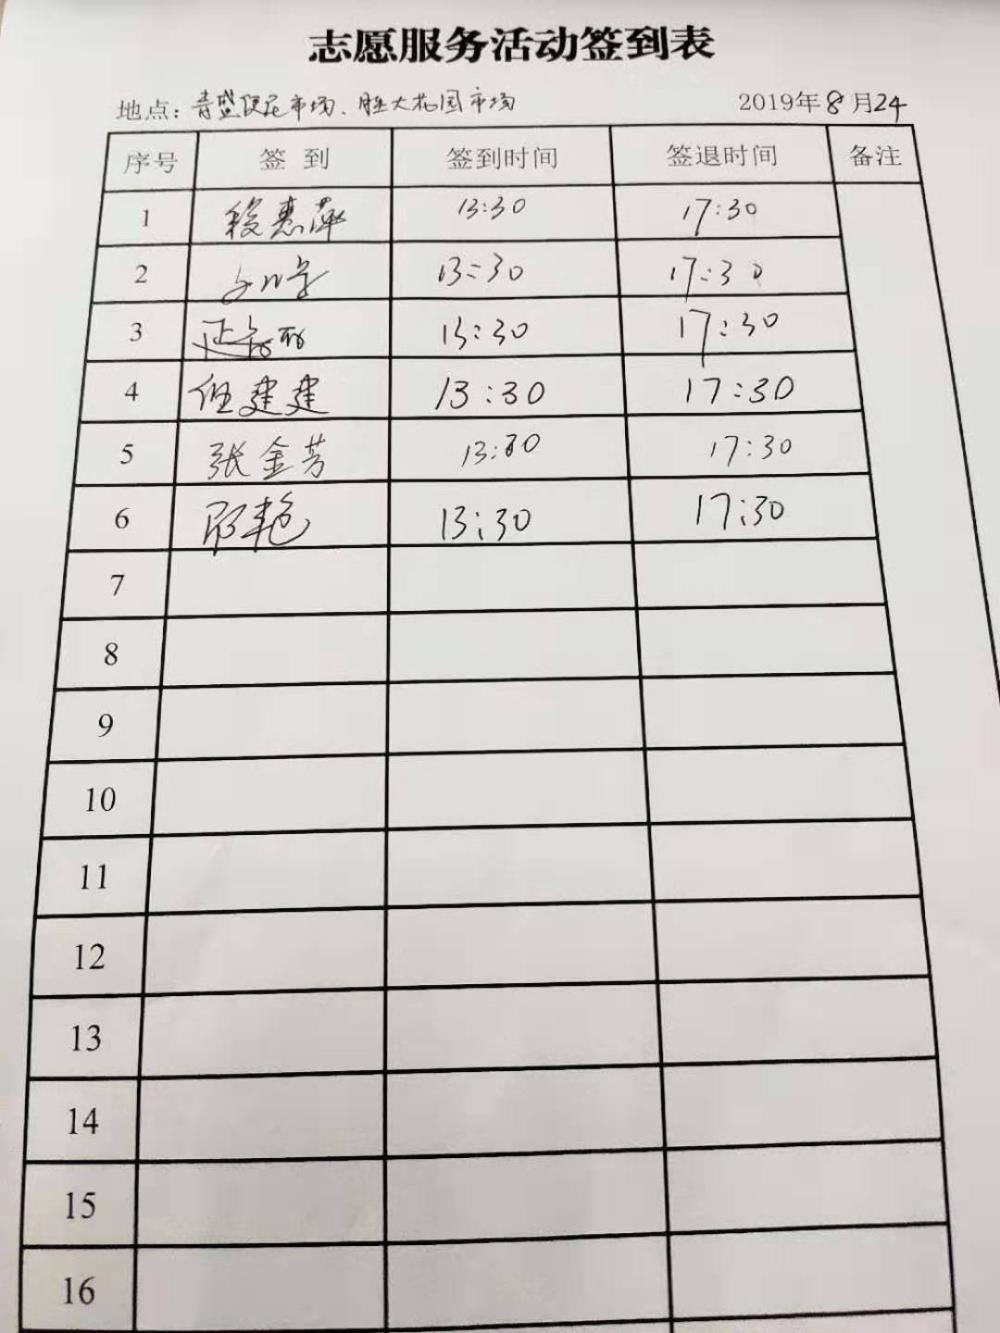 志愿服务活动签到表
地点：青盛便民市场、胜大花园市场 2019年8月24
序号 签到 签到时间 签退时间 备注
1 惠萍 13:30 17:30
2 13:30 17:30
3 13:30 17:30
4 但建建 13:30 17:30
5 张金芳 13:30 17:30
6 邴艳 13:30 17:30
7
8
9
10
11
12
13
14
15
16